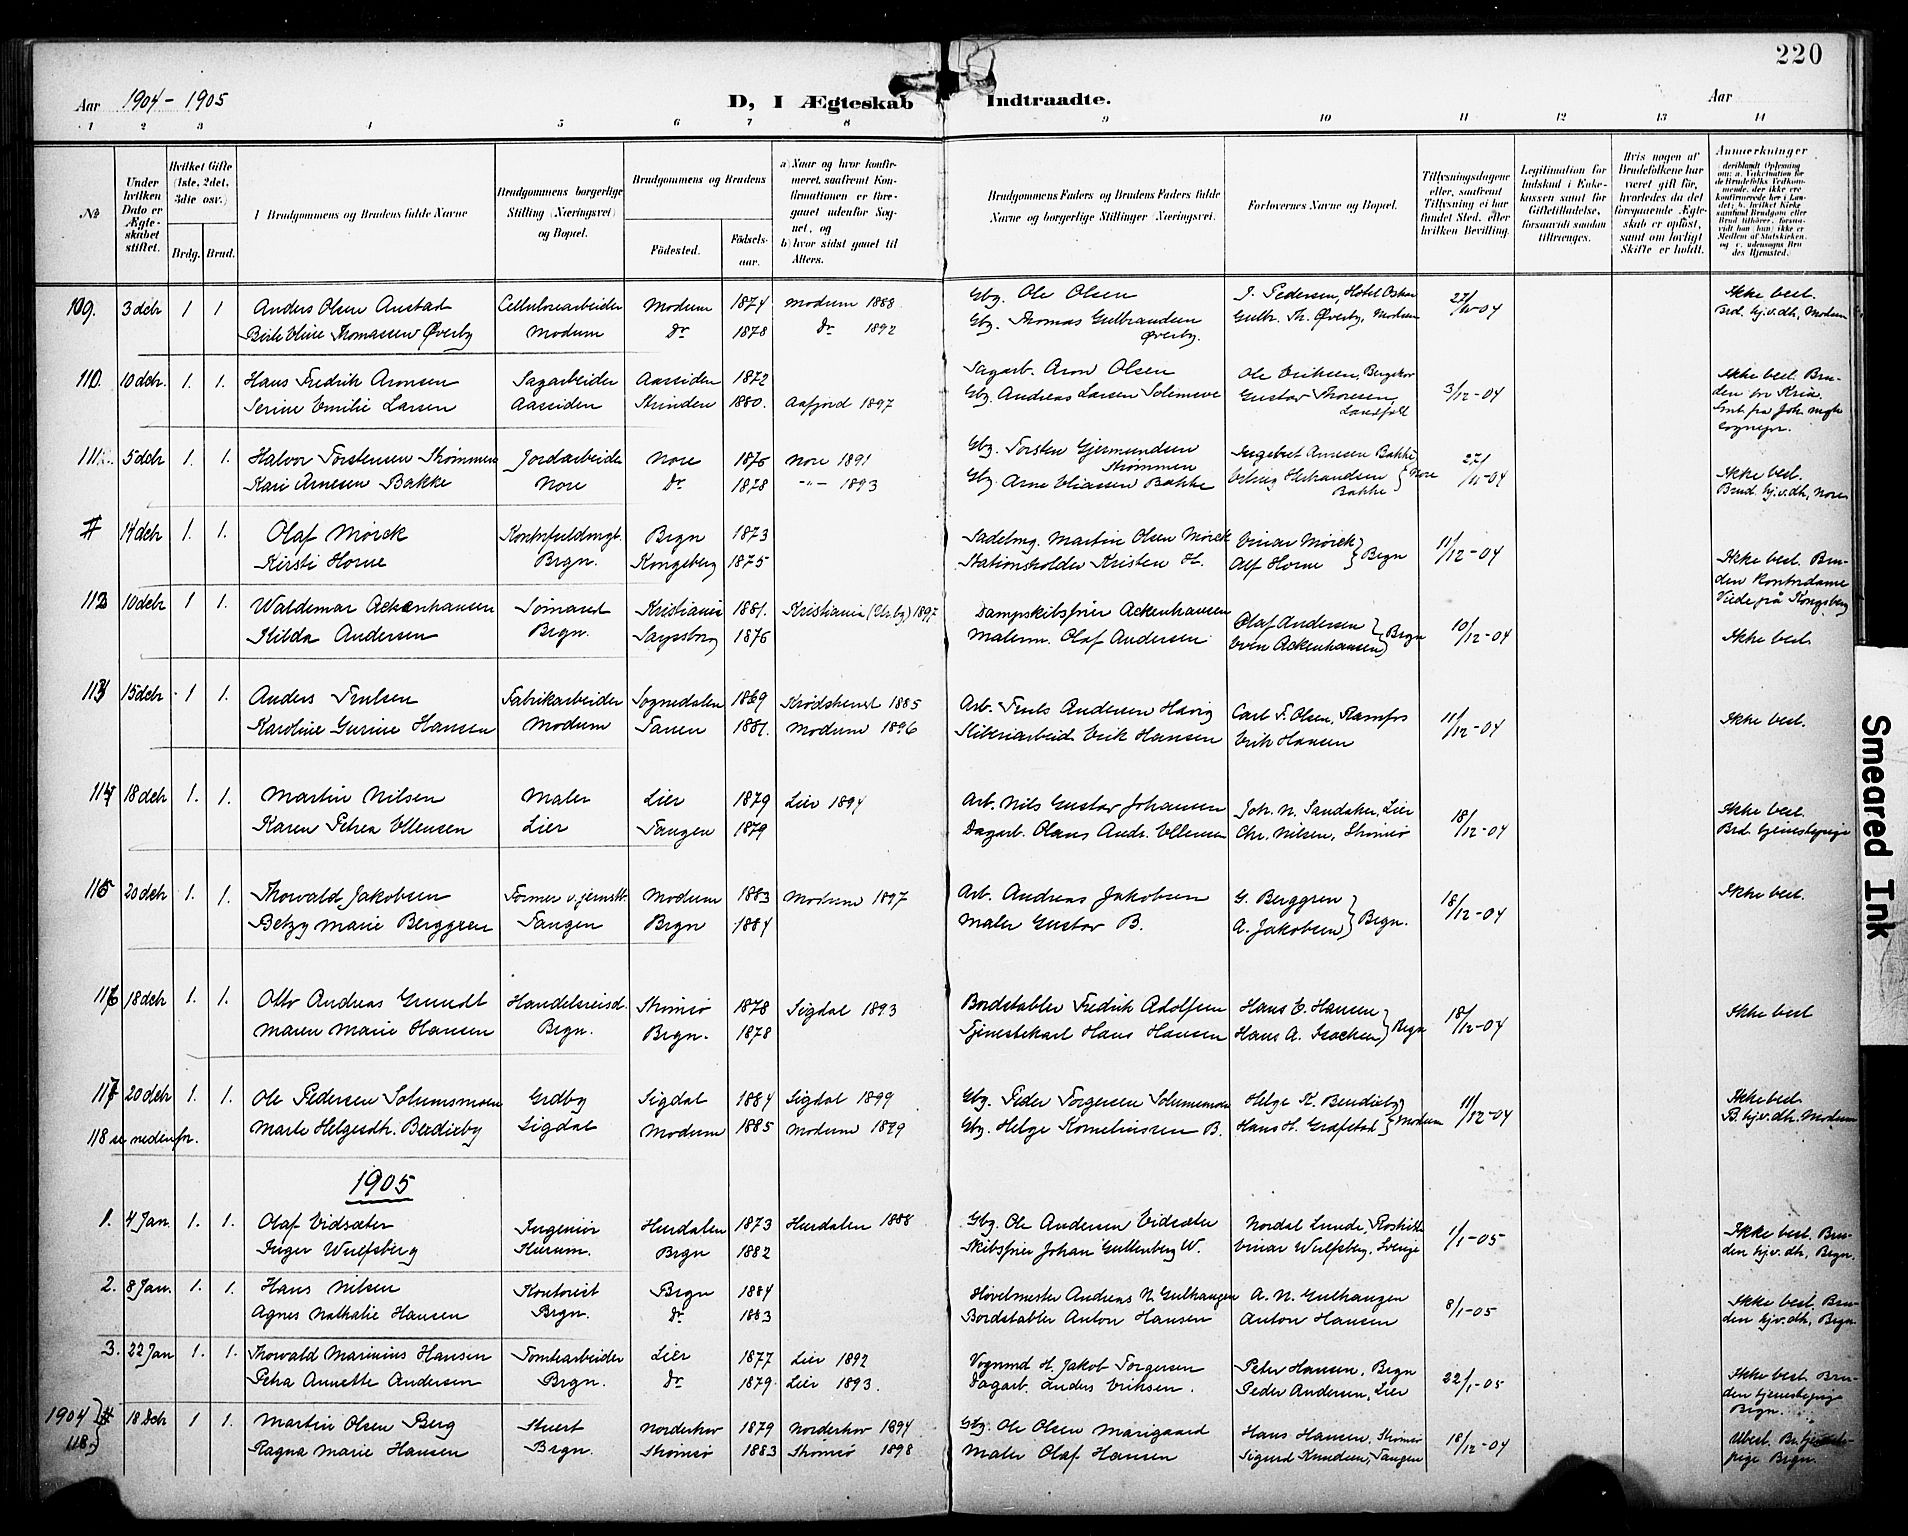 220
Aar 1904 - 1905
D, I Ægteskab Indtraadte.
Aar
1 2 3 4 5 6 7 8 9 10 11 12 13 14
No
Under hvilken Dato er Ægteskabet stiftet.
Hvilket Gifte (1ste, 2det, 3die osv.)
Brdg. Brud.
Brudgommens og Brudens fulde Navne
Brudgommens borgerlige Stilling (Næringsvei) og Bopæl.
Brudgommens og Brudens
Fødested. Fødselsaar.
a) Naar og hvor konfirmeret, saafremt Konfirmationen er foregaaet udenfor Sognet, og
b) hvor sidst gaaet til Alters.
Brudgommens Faders og Brudens Faders fulde Navne og borgerlige Stillinger (Næringsvei).
Forlovernes Navne og Bopæl.
Tillysningsdagene eller, saafremt Tillysning ei har fundet Sted, efter hvilken Bevilling.
Legitimation for Indskud i Enkekassen samt for Giftetilladelse, forsaavidt saadan tiltrænges.
Hvis nogen af Brudefolkene har været gift før, hvorledes da det foregaaende Ægteskab er opløst, samt om lovligt Skifte er holdt.
Anmærkninger
109. 3 decbr 1 1 Anders Olsen Austad Cellulosearbeider Modum 1874 Modum 1888 Gbg. Ole Olsen J. Pedersen, Hotel Oskar 27/11-04 Ikke besl.
Berte Oline Thomassen Øverby Modum Do 1878 Do 1892 Gbg. Thomas Gulbrandsen Øverby. Gulb. Th. Øverby, Modum Brd. hj.v.dh, Modum
110. 10 decbr. 1. 1. Hans Fredrik Aronsen Sagarbeider Aassiden 1872 Sagarb. Aron Olsen Ole Eriksen, Bergskov 3/12-04 Ikke besl. Bruden fra Kria.
Serine Emilie Larsen Aassiden Strinden 1880. Aafjord 1897 Gbg. Andreas Larsen Gustav Thoresen, Landfall
111. 5 decbr 1. 1. Halvor Torstensen Strømmen Jordarbeider Nore 1876 Nore 1891 Gbg. Torsten Gjermundsen Strømmen Ingebret Arnesen Bakke 27/11-04 Ikke besl.
Kari Arnesen Bakke Nore Do 1878 -"- 1893 Gbg. Arne Eliassen Bakke Erling Bakke } Nore Brud. hj.v.dh, Nore
# 14 decbr 1. 1. Olaf Mörck Kontorfuldmgt. Brgn 1873 Sadelmg. Martin Olsen Mörck Einar Mörck 11/12-04 Ikke besl. Bruden
Kirsti Horne Brgn. Kongsberg 1875 Stationsholder Kristen H. Alf Horne } Brgn Kontordame
Viede på Kongsberg
112 10 decbr 1 1. Waldemar Ackenhausen Sømand Kristiania 1881. Kristiania 1897 Dampskibsfører Ackenhausen Olaf Andersen 10/12-04
Hilda Andersen Brgn. Sarpsborg 1876 Malerm. Olaf Andersen Even Ackenhausen } Brgn Ikke besl.
113 15 decbr 1 1. Anders Trulsen Fabrikarbeider Sognedalen 1869 Krødsherred 1885 Arb. Truls Andersen Carl F. Olsen, Ramfos 11/12-04 Ikke besl.
Karoline Gurine Hansen Modum Tanen 1881. Modum 1896 Sliberiarbeid. Erik Hansen Erik Hansen
114 18 decbr 1. 1. Martin Nilsen Maler Lier 1879 Lier 1894 Arb. Nils Gustav Johansen Joh. N. Sandaker, Lier 18/12-04 Ikke besl.
Karen Petrea Ellensen Lier Tangen 1879 Dagarb. Olaus Andr. Ellensen Chr. Nilsen, Strømsø Brd. tjenestepige
115 20 decbr 1. 1. Thorvald Jakobsen Former v. jernst. Modum 1883 Modum 1897 Arb. Andreas Jakobsen G. Berggren 18/12-04 Ikke besl.
Betzy Marie Berggren Tangen Brgn 1884 Maler Gustav B. A. Jakobsen } Brgn.
116 18 decbr 1. 1. Otto Andreas Grundt Handelsreisd. Strømsø 1878 Sigdal 1893 Bordstabler Fredrik Adolfsen Hans E. Hansen 18/12-04 Ikke besl
Maren Marie Hansen Brgn. Brgn. 1878 Tjenestekarl Hans Hansen Hans A. Isachsen } Brgn
117 20 decbr 1. 1. Ole Pedersen Solumsmoen Grdbg Sigdal 1884 Sigdal 1899 Gbg. Peder Torgersen Solumsmoen Helge K. Bendieby 11/12-04 Ikke besl.
118 se nedenfor. Marte Helgesdtr. Bendieby Sigdal Modum 1885 Modum 1899 Gbg. Helge Korneliussen B. Hans H. Grafstad } Modum B. hj.v.dh. Modum
1905
1. 4 Jan. 1. 1. Olaf Eidsæter Ingeniør Hurdalen 1873 Hurdalen 1888 Gbg. Ole Andersen Eidsæter Nordal Lunde, 1/1-05 Ikke besl. Bruden
Inger Wulfsberg Hurum. Brgn 1882 Skibsfører Johan Guttenberg W. Einar Wulfsberg, Sverige hj.v.dh, Brgn.
2. 8 Jan. 1. 1. Hans Nilsen Kontorist Brgn 1884 Høvelmester Andreas N. Gulhaugen A. N. Gulhaugen 8/1-05 Ikke besl. Bruden
Agnes Nathalie Hansen Brgn. Do 1883 Bordstabler Anton Hansen Anton Hansen hj.v.dh, Brgn
3. 22 Jan 1. 1. Thorvald Marinius Hansen Tomtearbeider Lier 1877 Lier 1892 Vognmd H. Jakob Torgersen Peter Hansen, Brgn 22/1-05 Ikke besl. Bruden
Petra Annette Andersen Brgn. Do 1879. Lier 1893. Dagarb. Anders Eriksen. Peder Andersen, Lier tjenestepige Brgn.
1904 118. 18 Dcbr 1 1. Martin Olsen Berg Stuert Norderhov 1879 Norderhov 1894 Gbg. Ole Olsen Marigaard Hans Hansen, Strømsø 18/12-04 Ubesl.
Ragna Marie Hansen Brgn. Strømsø 1883 Strømsø 1898 Maler Olaf Hansen Sigurd Knudsen, Tangen pige Brgn.
Smeared Ink